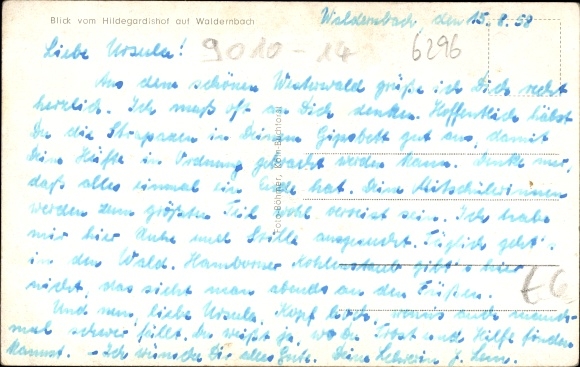 Blick vom Hildegardishof auf Waldernbach
Waldernbach den 15.8.58
Liebe Ursula!
9010-14
6296
Aus dem schönen Westerwald grüße ich Dich recht
herzlich. Ich muß oft an Dich denken. Hoffentlich hältst
Du die Strapazen in Deinem Gipsbett gut aus, damit
Deine Hüfte in Ordnung gebracht werden kann. Denke nur,
daß alles einmal ein Ende hat. Deine Mitschülerinnen
werden zum größten Teil wohl verreist sein. Ich habe
mir hier Ruhe und Stille ausgesucht. Täglich geht's
in den Wald. Hamborner Kohlenstaub gibt's hier
nicht, das sieht man abends an den Füßen.
Und nun, liebe Ursula, Kopf hoch, wenn's auch manch-
mal schwer fällt. Du weißt ja, wo Du Trost und Hilfe finden
kannst. – Ich wünsche Dir alles Gute. Deine
Foto Böhmer,
£6